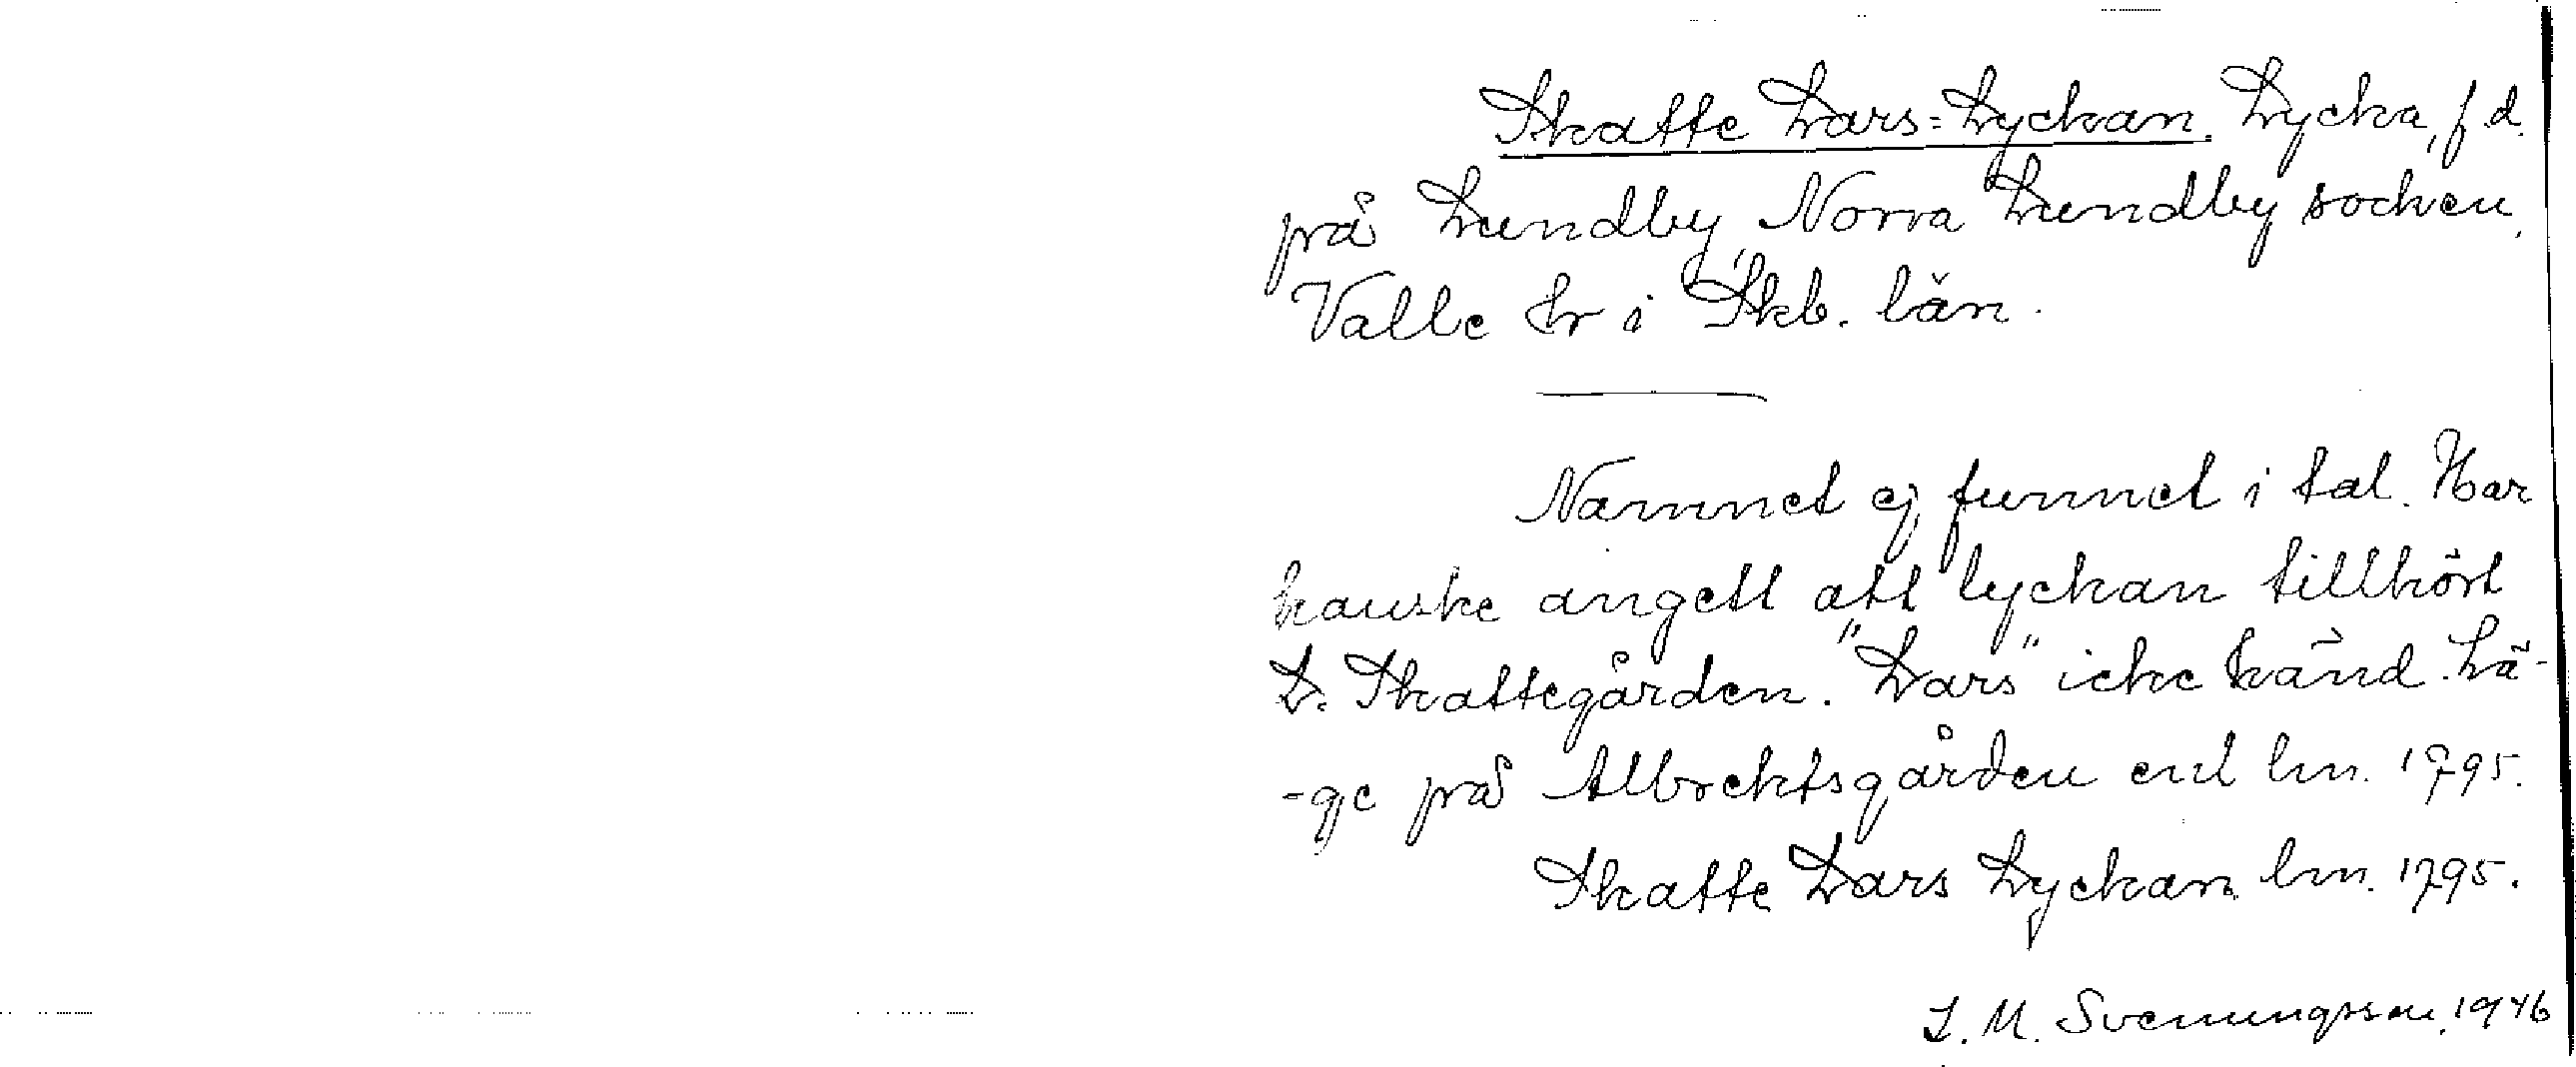 Skatte Lars=Lyckan. Lycka, f d.
på Lundby, Norra Lundby socken,
Valle hr i Skb. län.
Namnet ej funnet i tal. Har
kanske angett att lyckan tillhört
L. Skattegården. "Lars" icke känd. Lä-
-ge på Albrektsgården enl lm. 1795.
Skatte Lars Lyckan lm. 1795.
I. M. Svenungsson, 1946